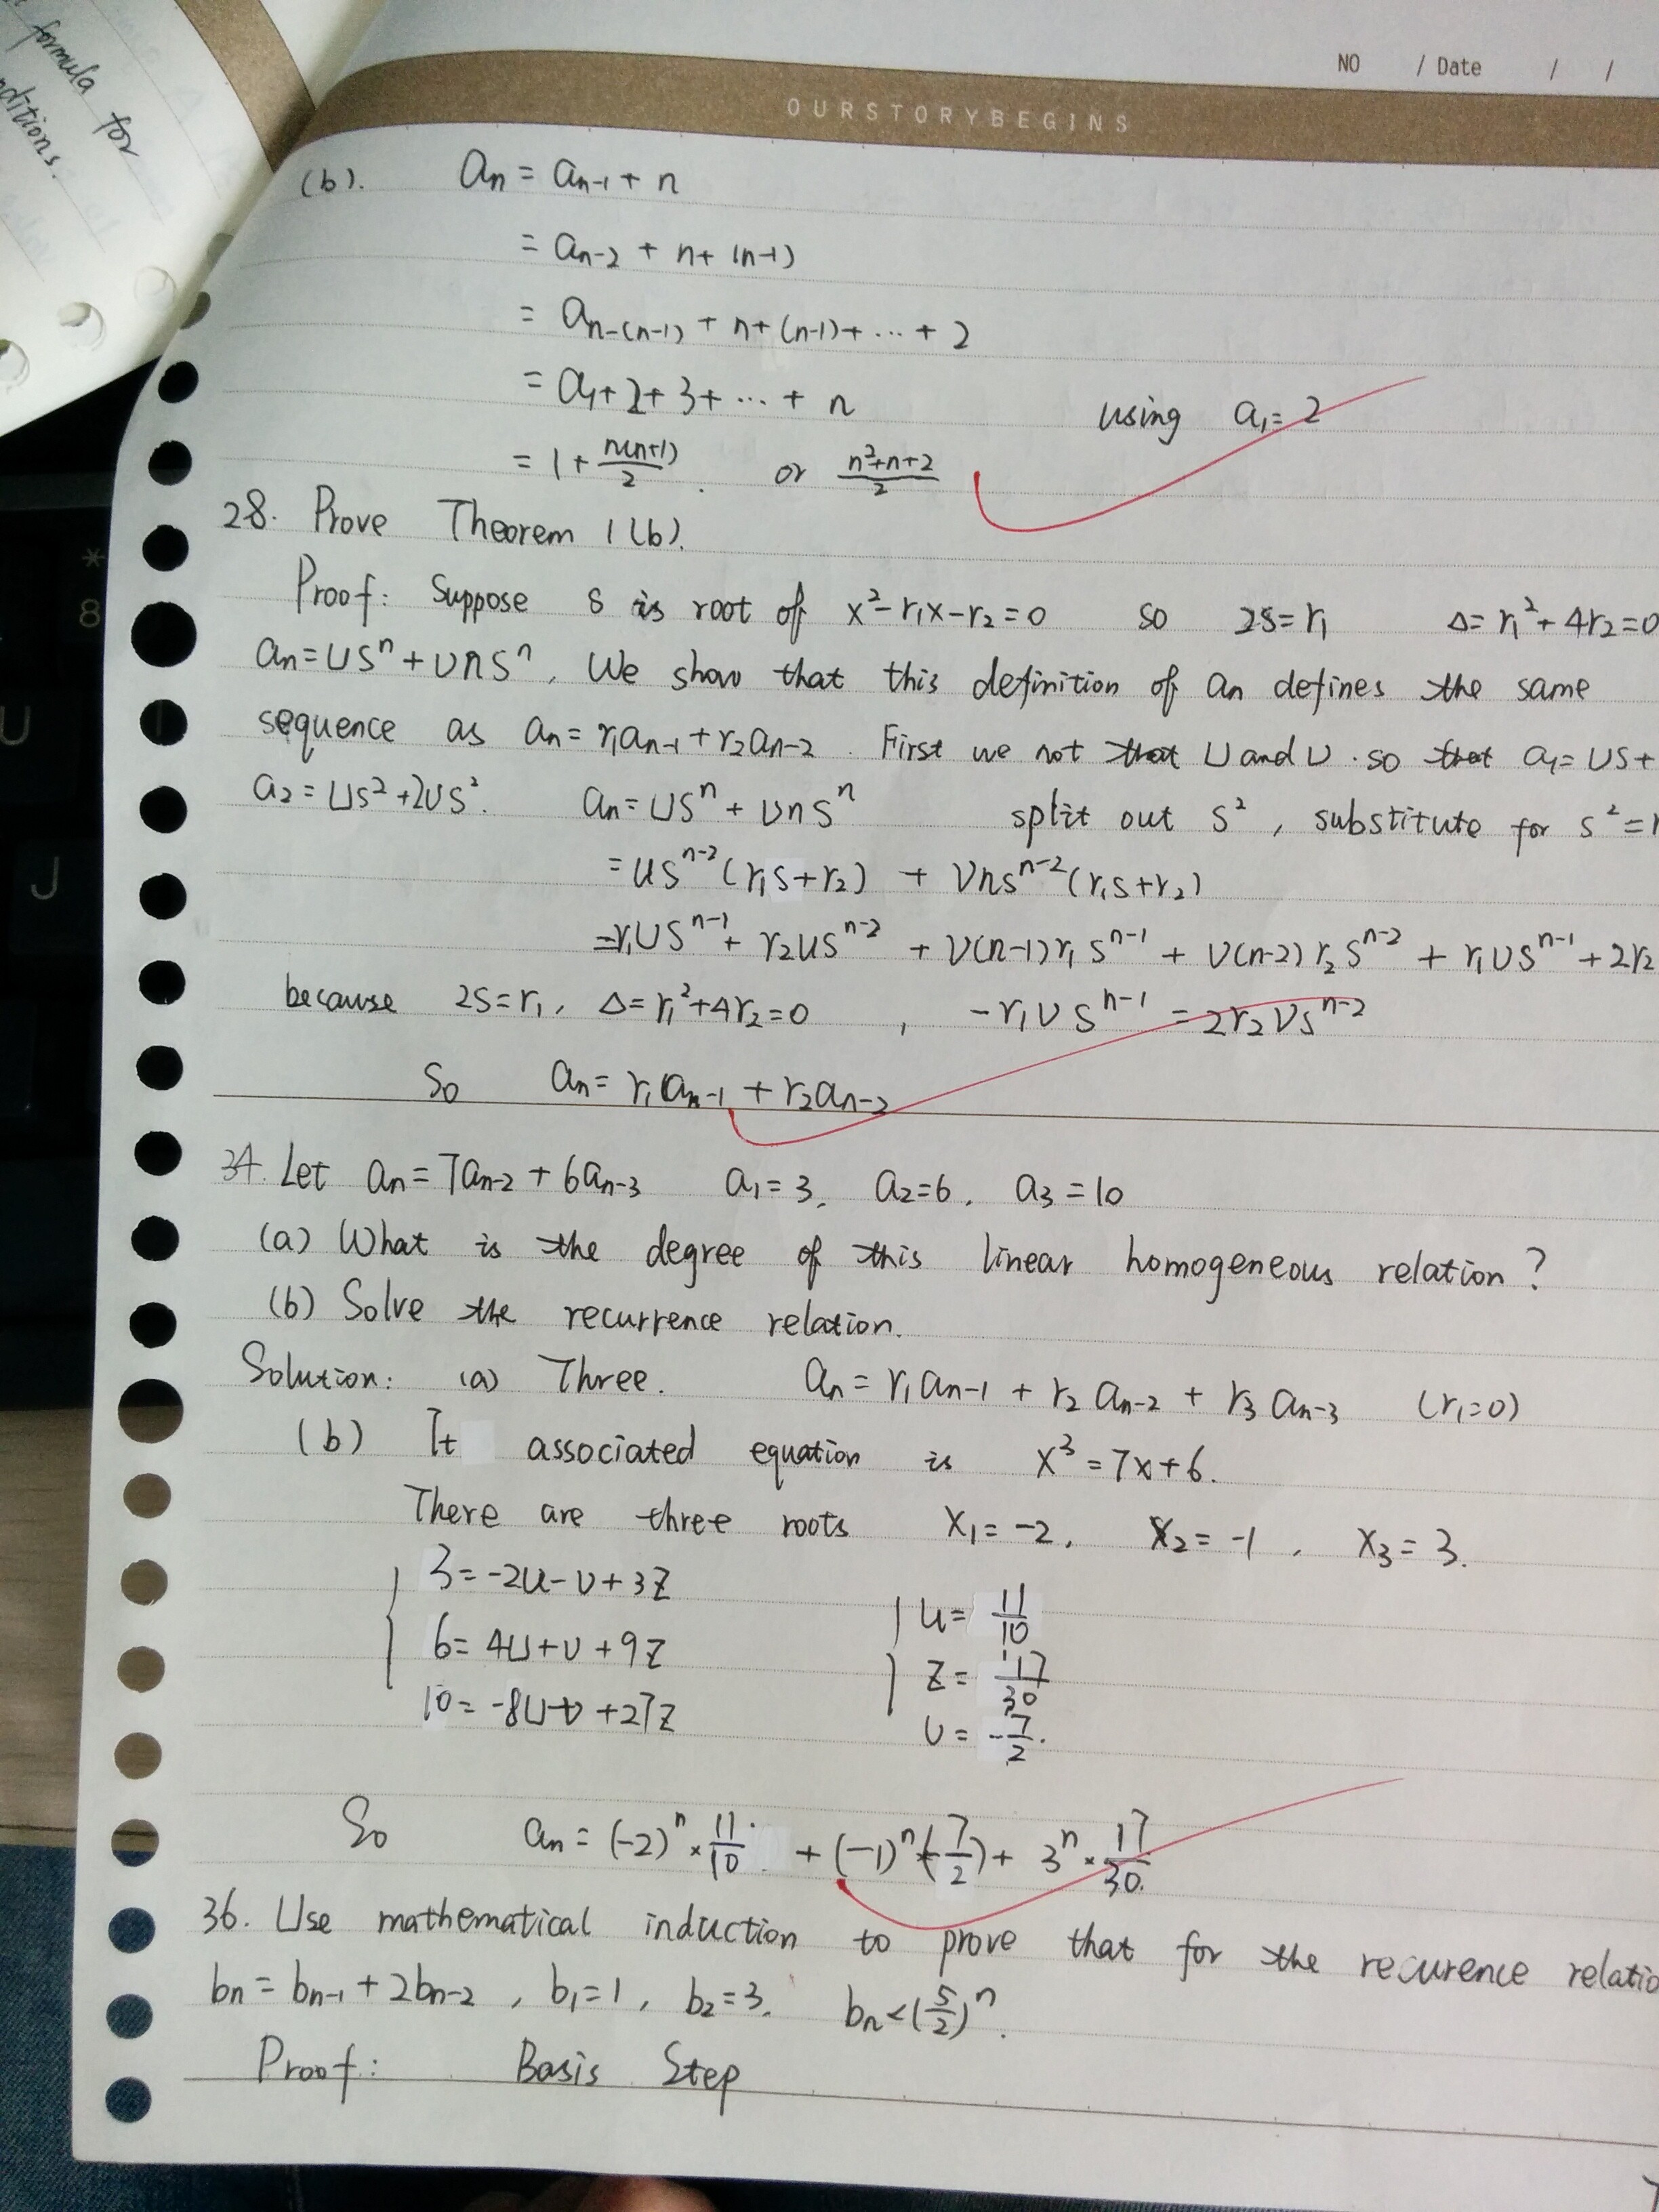 formula for
NO / Date / /
OURSTORYBEGINS
(b). an = an-1 + n
= an-2 + n + (n-1)
= an-(n-1) + n + (n-1) + ... + 2
= a1 + 2 + 3 + ... + n using a1 = 2
= 1 + n(n+1)/2 . or (n²+n+2)/2
28. Prove Theorem 1(b).
Proof: Suppose s is root of x²-r1x-r2=0 so 2s=r1 Δ=r1²+4r2=0
an=usⁿ+vnsⁿ. We show that this definition of an defines the same
sequence as an=r1an-1+r2an-2. First we not that U and V. so that a1=us+
a2=us²+2vs². an=usⁿ+vnsⁿ split out s², substitute for s²=
=usⁿ⁻²(r1s+r2) + vnsⁿ⁻²(r1s+r2)
=r1usⁿ⁻¹+ r2usⁿ⁻² + v(n-1)r1sⁿ⁻¹ + v(n-2)r2sⁿ⁻² + r1vsⁿ⁻¹ + 2r2
because 2s=r1, Δ=r1²+4r2=0 , -r1vsⁿ⁻¹ = 2r2vsⁿ⁻²
So an=r1an-1 + r2an-2
34. Let an=7an-2 + 6an-3 a1=3, a2=6, a3=10
(a) What is the degree of this linear homogeneous relation?
(b) Solve the recurrence relation.
Solution: (a) Three. an = r1an-1 + r2an-2 + r3an-3 (r1=0)
(b) It associated equation is x³=7x+6.
There are three roots x1=-2, x2=-1, x3=3.
3=-2u-v+3z
6=4u+v+9z
10=-8u-v+27z
u= 11/10
z= 17/30
v= -7/2.
So an = (-2)ⁿ × 11/10 + (-1)ⁿ(-7/2) + 3ⁿ × 17/30.
36. Use mathematical induction to prove that for the recurence relatio
bn = bn-1 + 2bn-2, b1=1, b2=3. bn<(5/2)ⁿ.
Proof: Basis Step
*
8
U
J